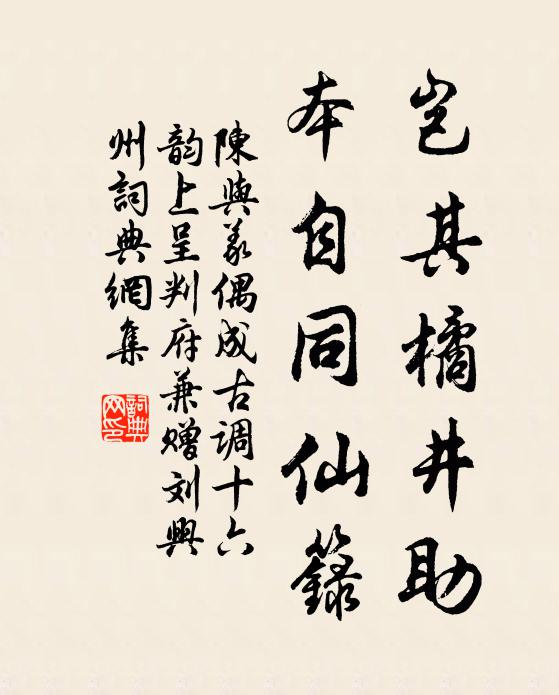 岂其橘井助
本自同仙籙
陳與義偶成古调十六
韵上呈判府兼赠刘興
州詞典網集
詞典
网印